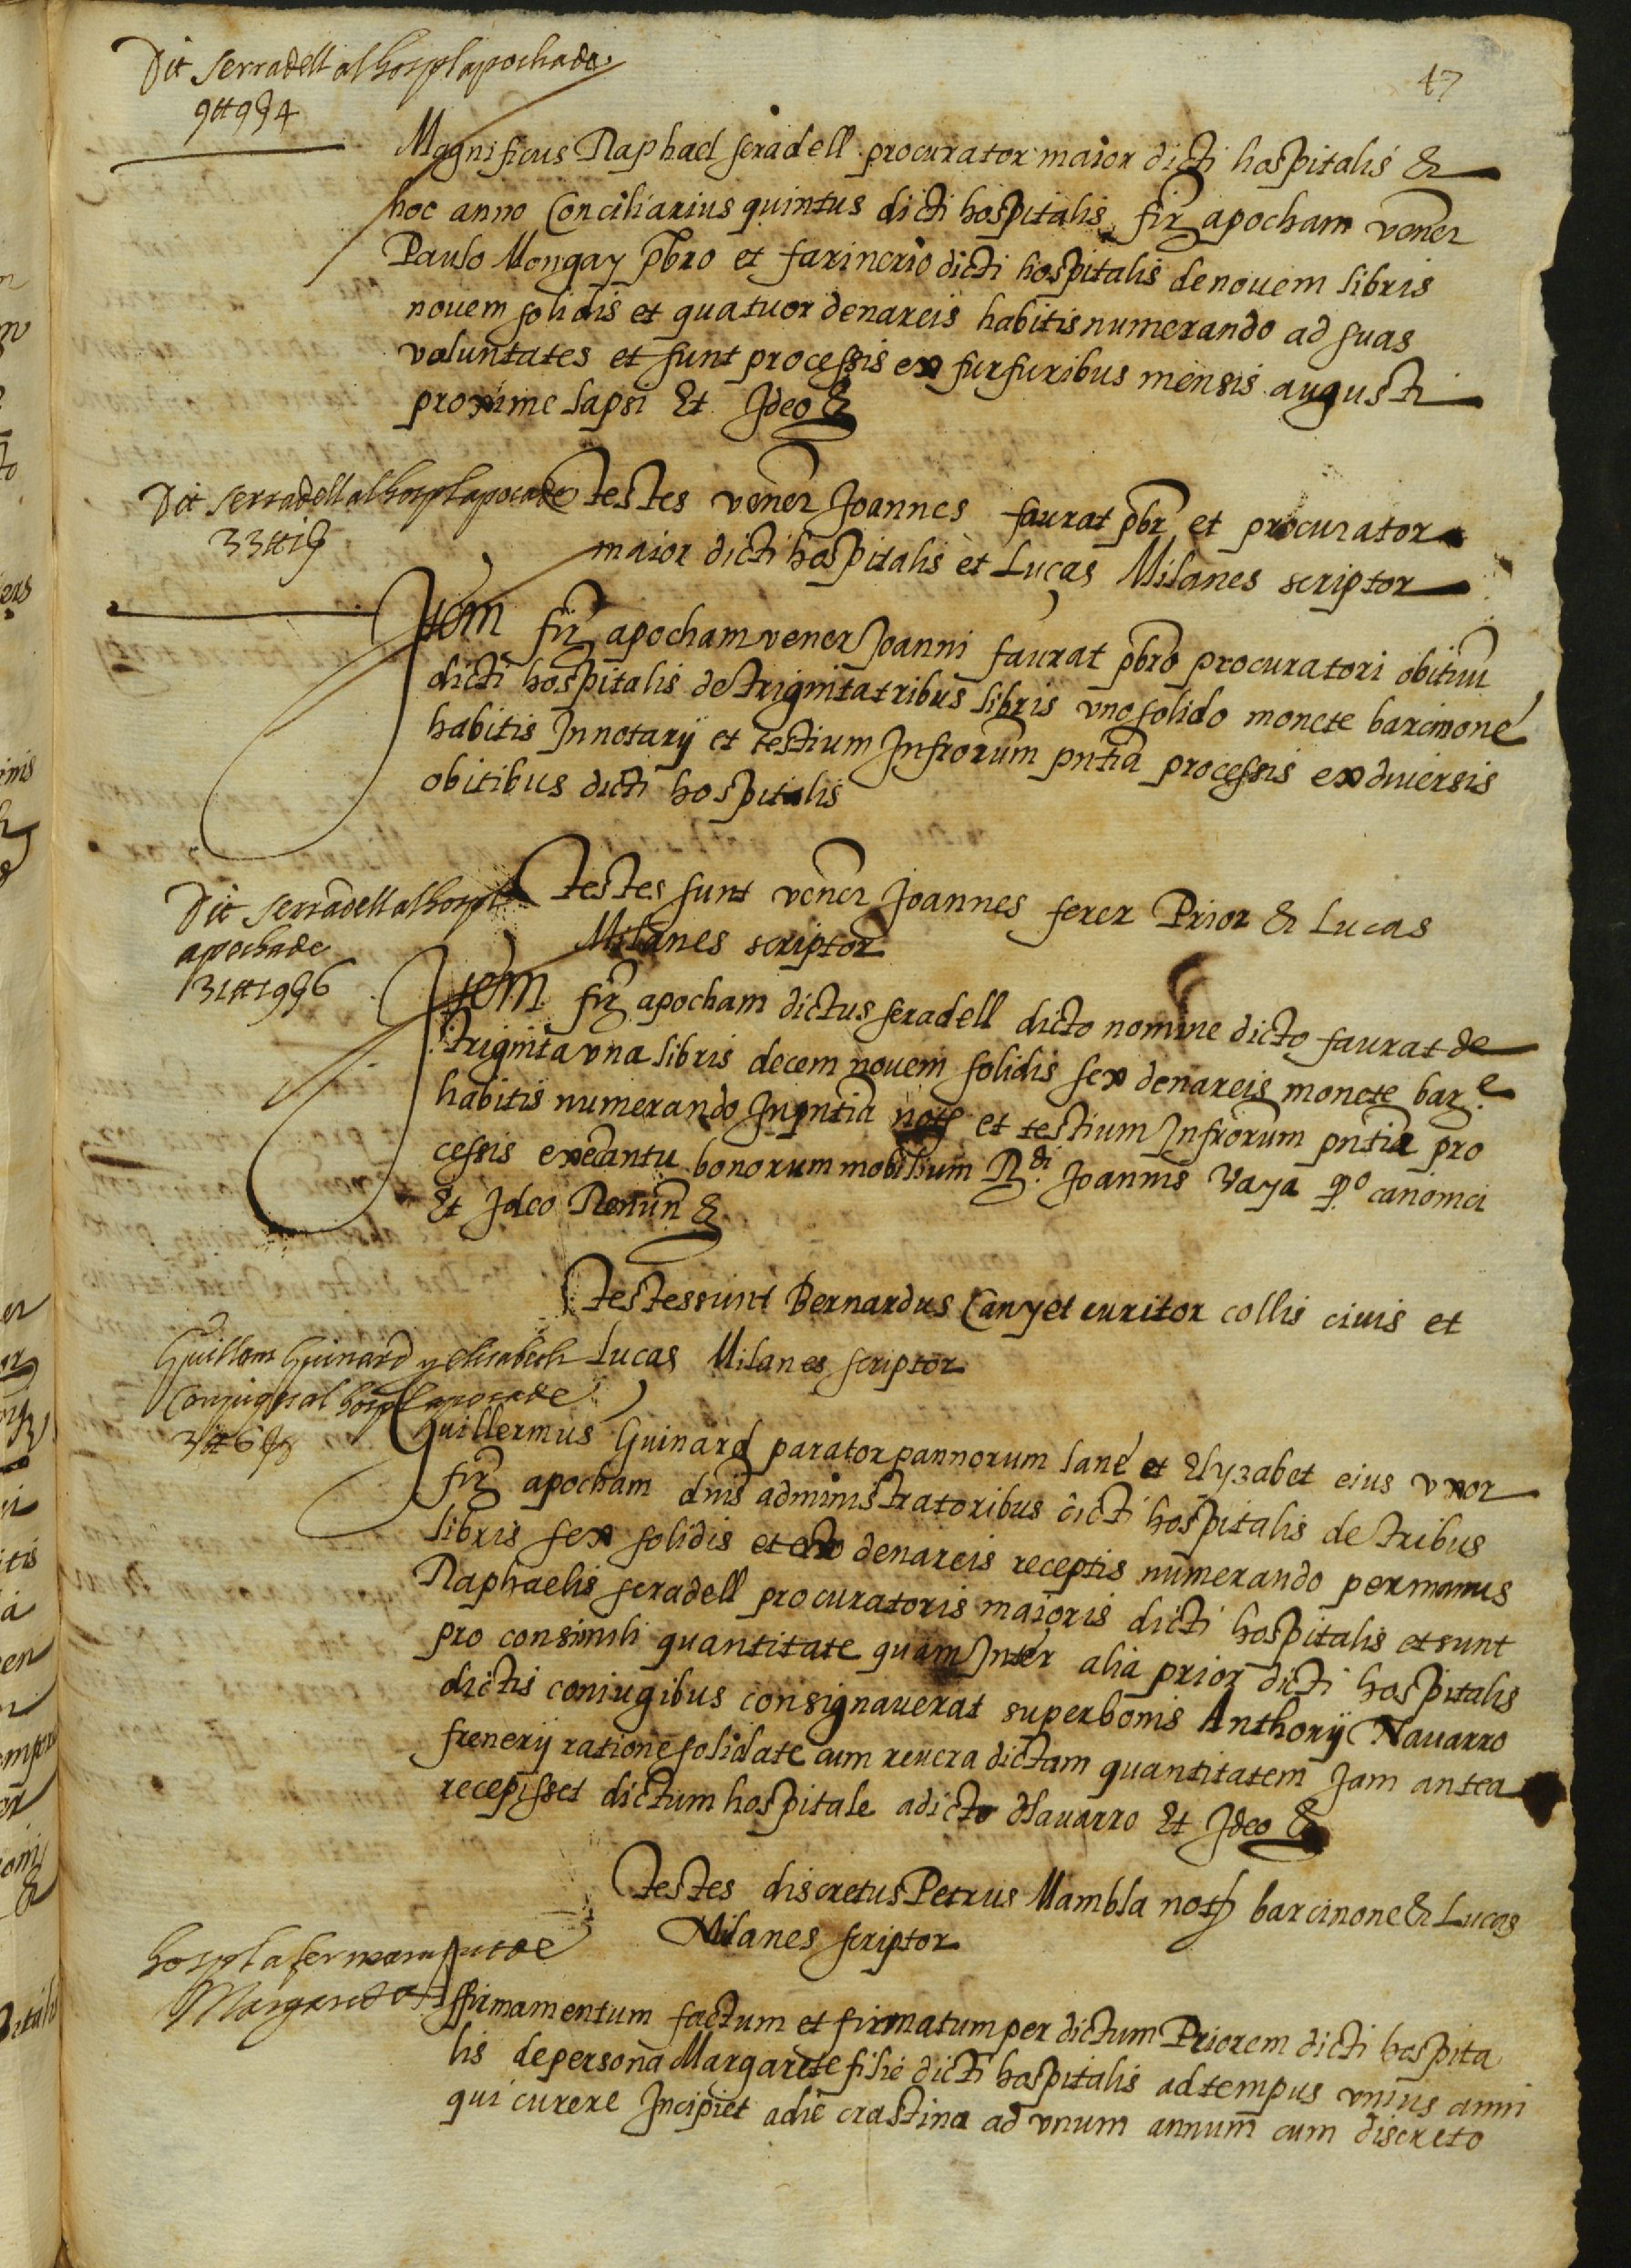 47
Dit Serradell al hospl apocha de
9 ll 9 s 4
Magnificus Raphael seradell procurator maior dicti hospitalis &
hoc anno Conciliarius quintus dicti hospitalis fir apocham vener
Paulo Mongay pbro et farinerio dicti hospitalis de nouem libris
nouem solidis et quatuor denareis habitis numerando ad suas
voluntates et sunt processis ex furfuribus mensis augusti
proxime lapsi Et Ideo &
Dit Serradell al hospl apoca de
33 ll 1 s
testes vener Joannes faurat pbr et procurator
maior dicti hospitalis et Lucas Milanes scriptor
Item fir apocham vener Joanni faurat pbro procuratori obituu
dicti hospitalis de triginta tribus libris vno solido monete barcinone
habitis In notarij et testium Infrorum pntia processis ex diuersis
obitibus dicti hospitalis
Dit Serradell al hospl
apocha de
31 ll 19 s 6
testes sunt vener Joannes ferer Prior & Lucas
Milanes scriptor
Item fir apocham dictus seradell dicto nomine dicto faurat de
triginta vna libris decem nouem solidis sex denareis monete bare
habitis numerando In pntia noty et testium Infrorum pntia pro
cessis ex encantu bonorum mobilium Rdi Joannis Vaya qo canonici
Et Ideo Renun &
testes sunt Bernardus Canyet curitor collis ciuis et
Lucas Milanes scriptor
Guillem Guinard y elisabeth
Conjuges al hospl apoca de
3 ll 6 s 8
Guillermus Guinard parator pannorum lane et Elyzabet eius vxor
fir apocham dnis administratoribus dicti hospitalis de tribus
libris sex solidis et octo denareis receptis numerando per manus
Raphaelis seradell procuratoris maioris dicti hospitalis et sunt
pro consimili quantitate quam Inter alia prior dicti hospitalis
dictis coniugibus consignauerat super bonis Anthonij Nauarro
frenerij ratione solidate cum reuera dictam quantitatem Jam antea
recepisset dictum hospitale a dicto Nauarro Et Ideo &
testes discretus Petrus Mambla noty barcinone & Lucas
Milanes scriptor
hospl afermament de
Margarida
Affirmamentum factum et firmatum per dictum Priorem dicti hospita
lis de persona Margarete filie dicti hospitalis ad tempus vnius anni
qui curere Incipiet a die crastina ad vnum annum cum discreto